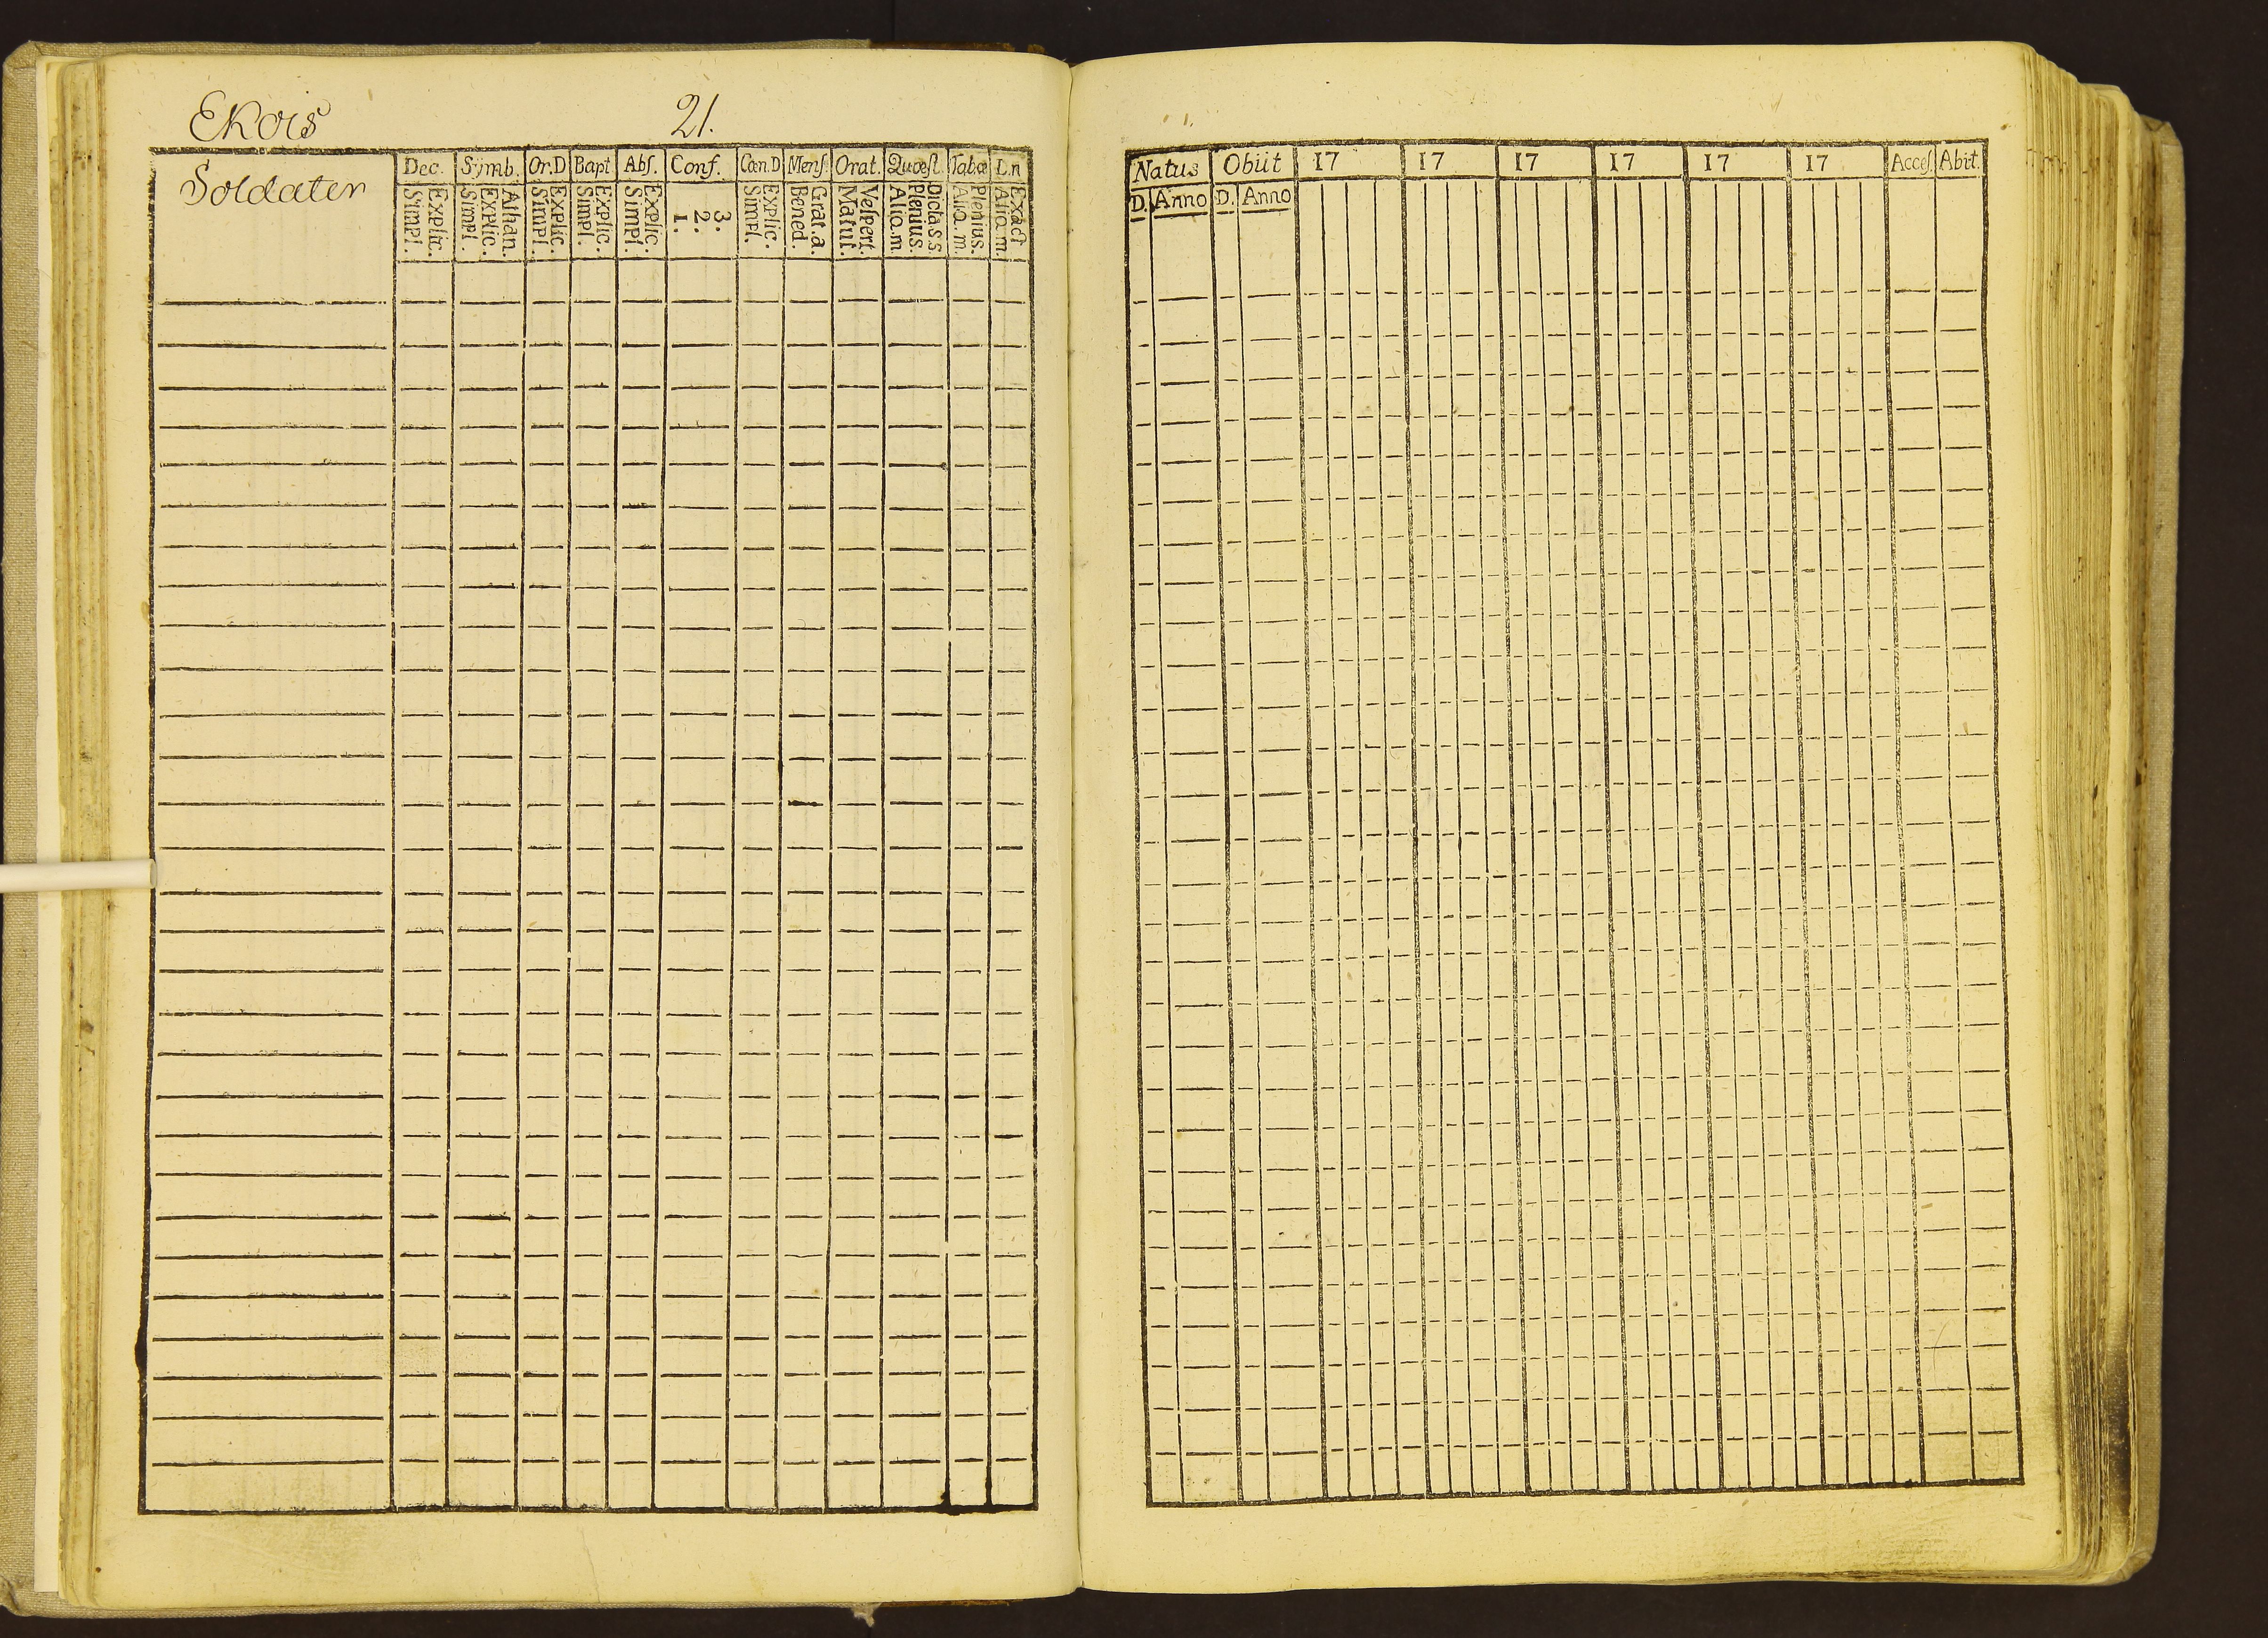 Ekois 21.
Soldater
Dec. Symb. Or.D Bapt Abſ. Conf. Cœn.D Menſ. Orat. Quæſt. Tab.œ D.n
Simpl. Explic. Simpl. Explic. Athan. Simpl. Explic. Simpl. Explic. Simpl. Explic. 1. 2. 3. Simpl. Explic. Bened. Grat.a. Matut. Veſpert. Aliq.m. Plenius. Dicta.s.s. Aliq.m. Plenius. Aliq.m. Exact
Natus Obiit 17 17 17 17 17 17 Acceſ. Abit.
D. Anno D. Anno